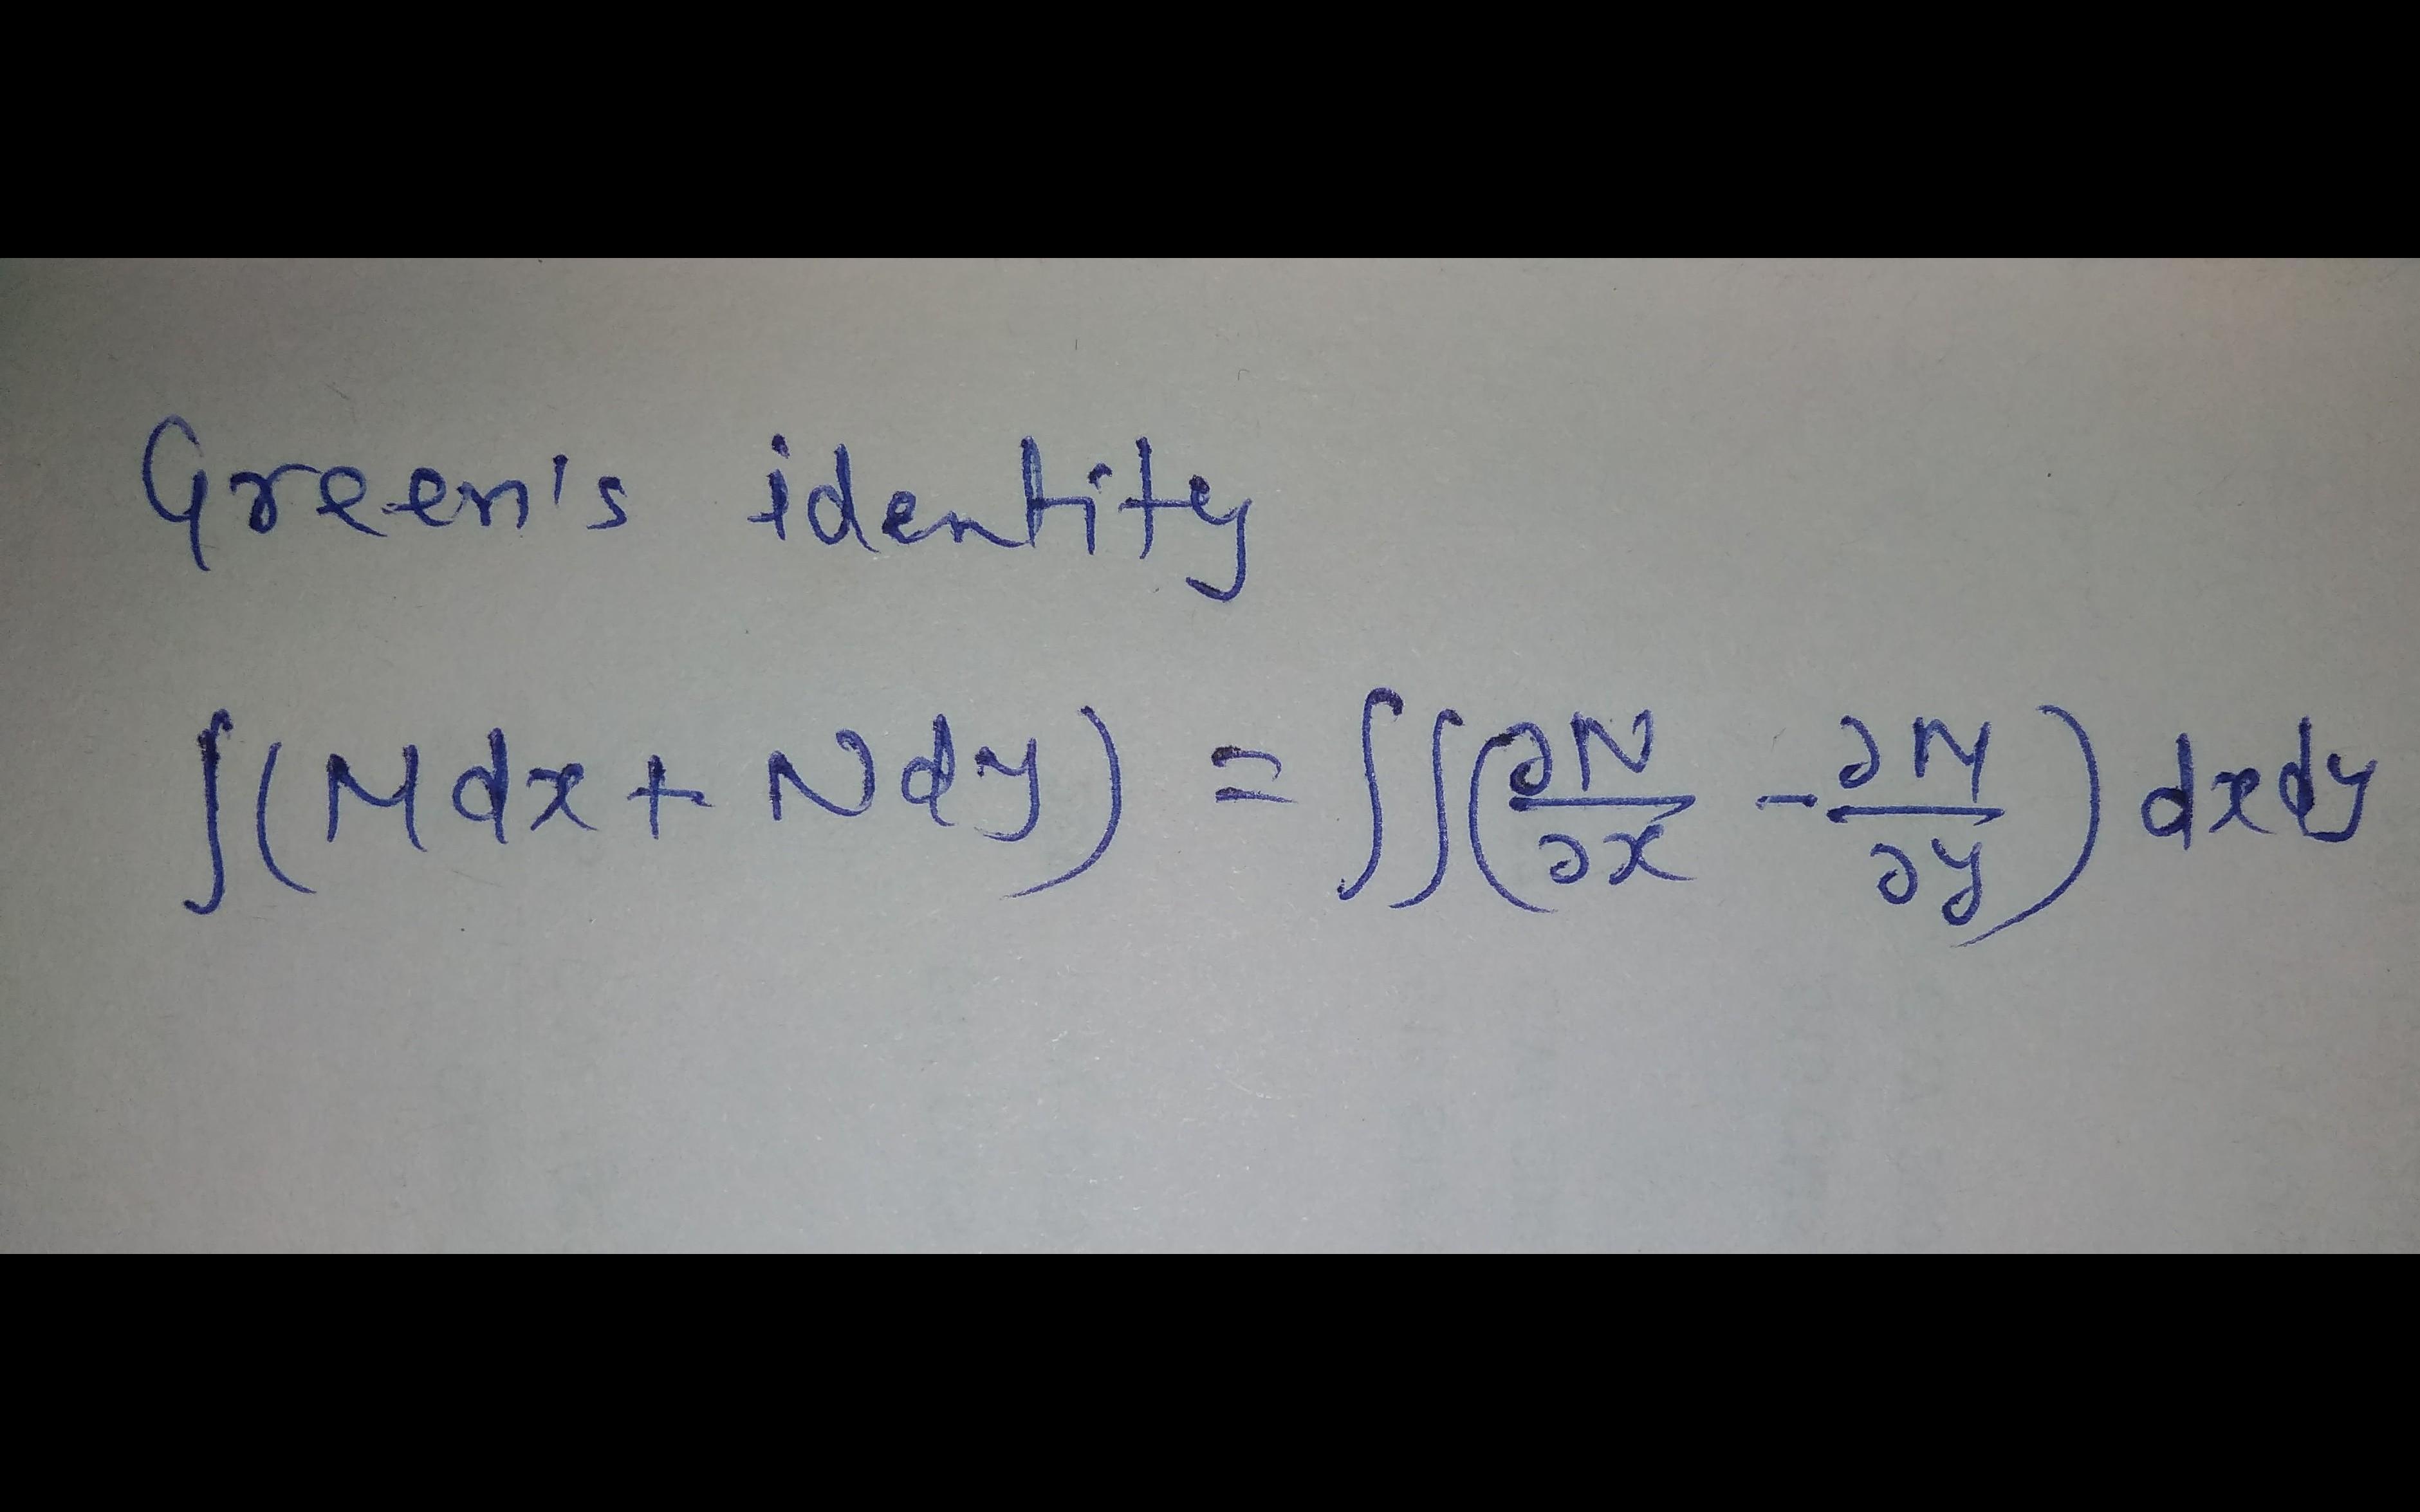 Green's identity
∫(Mdx + Ndy) = ∫∫(∂N/∂x - ∂M/∂y) dxdy